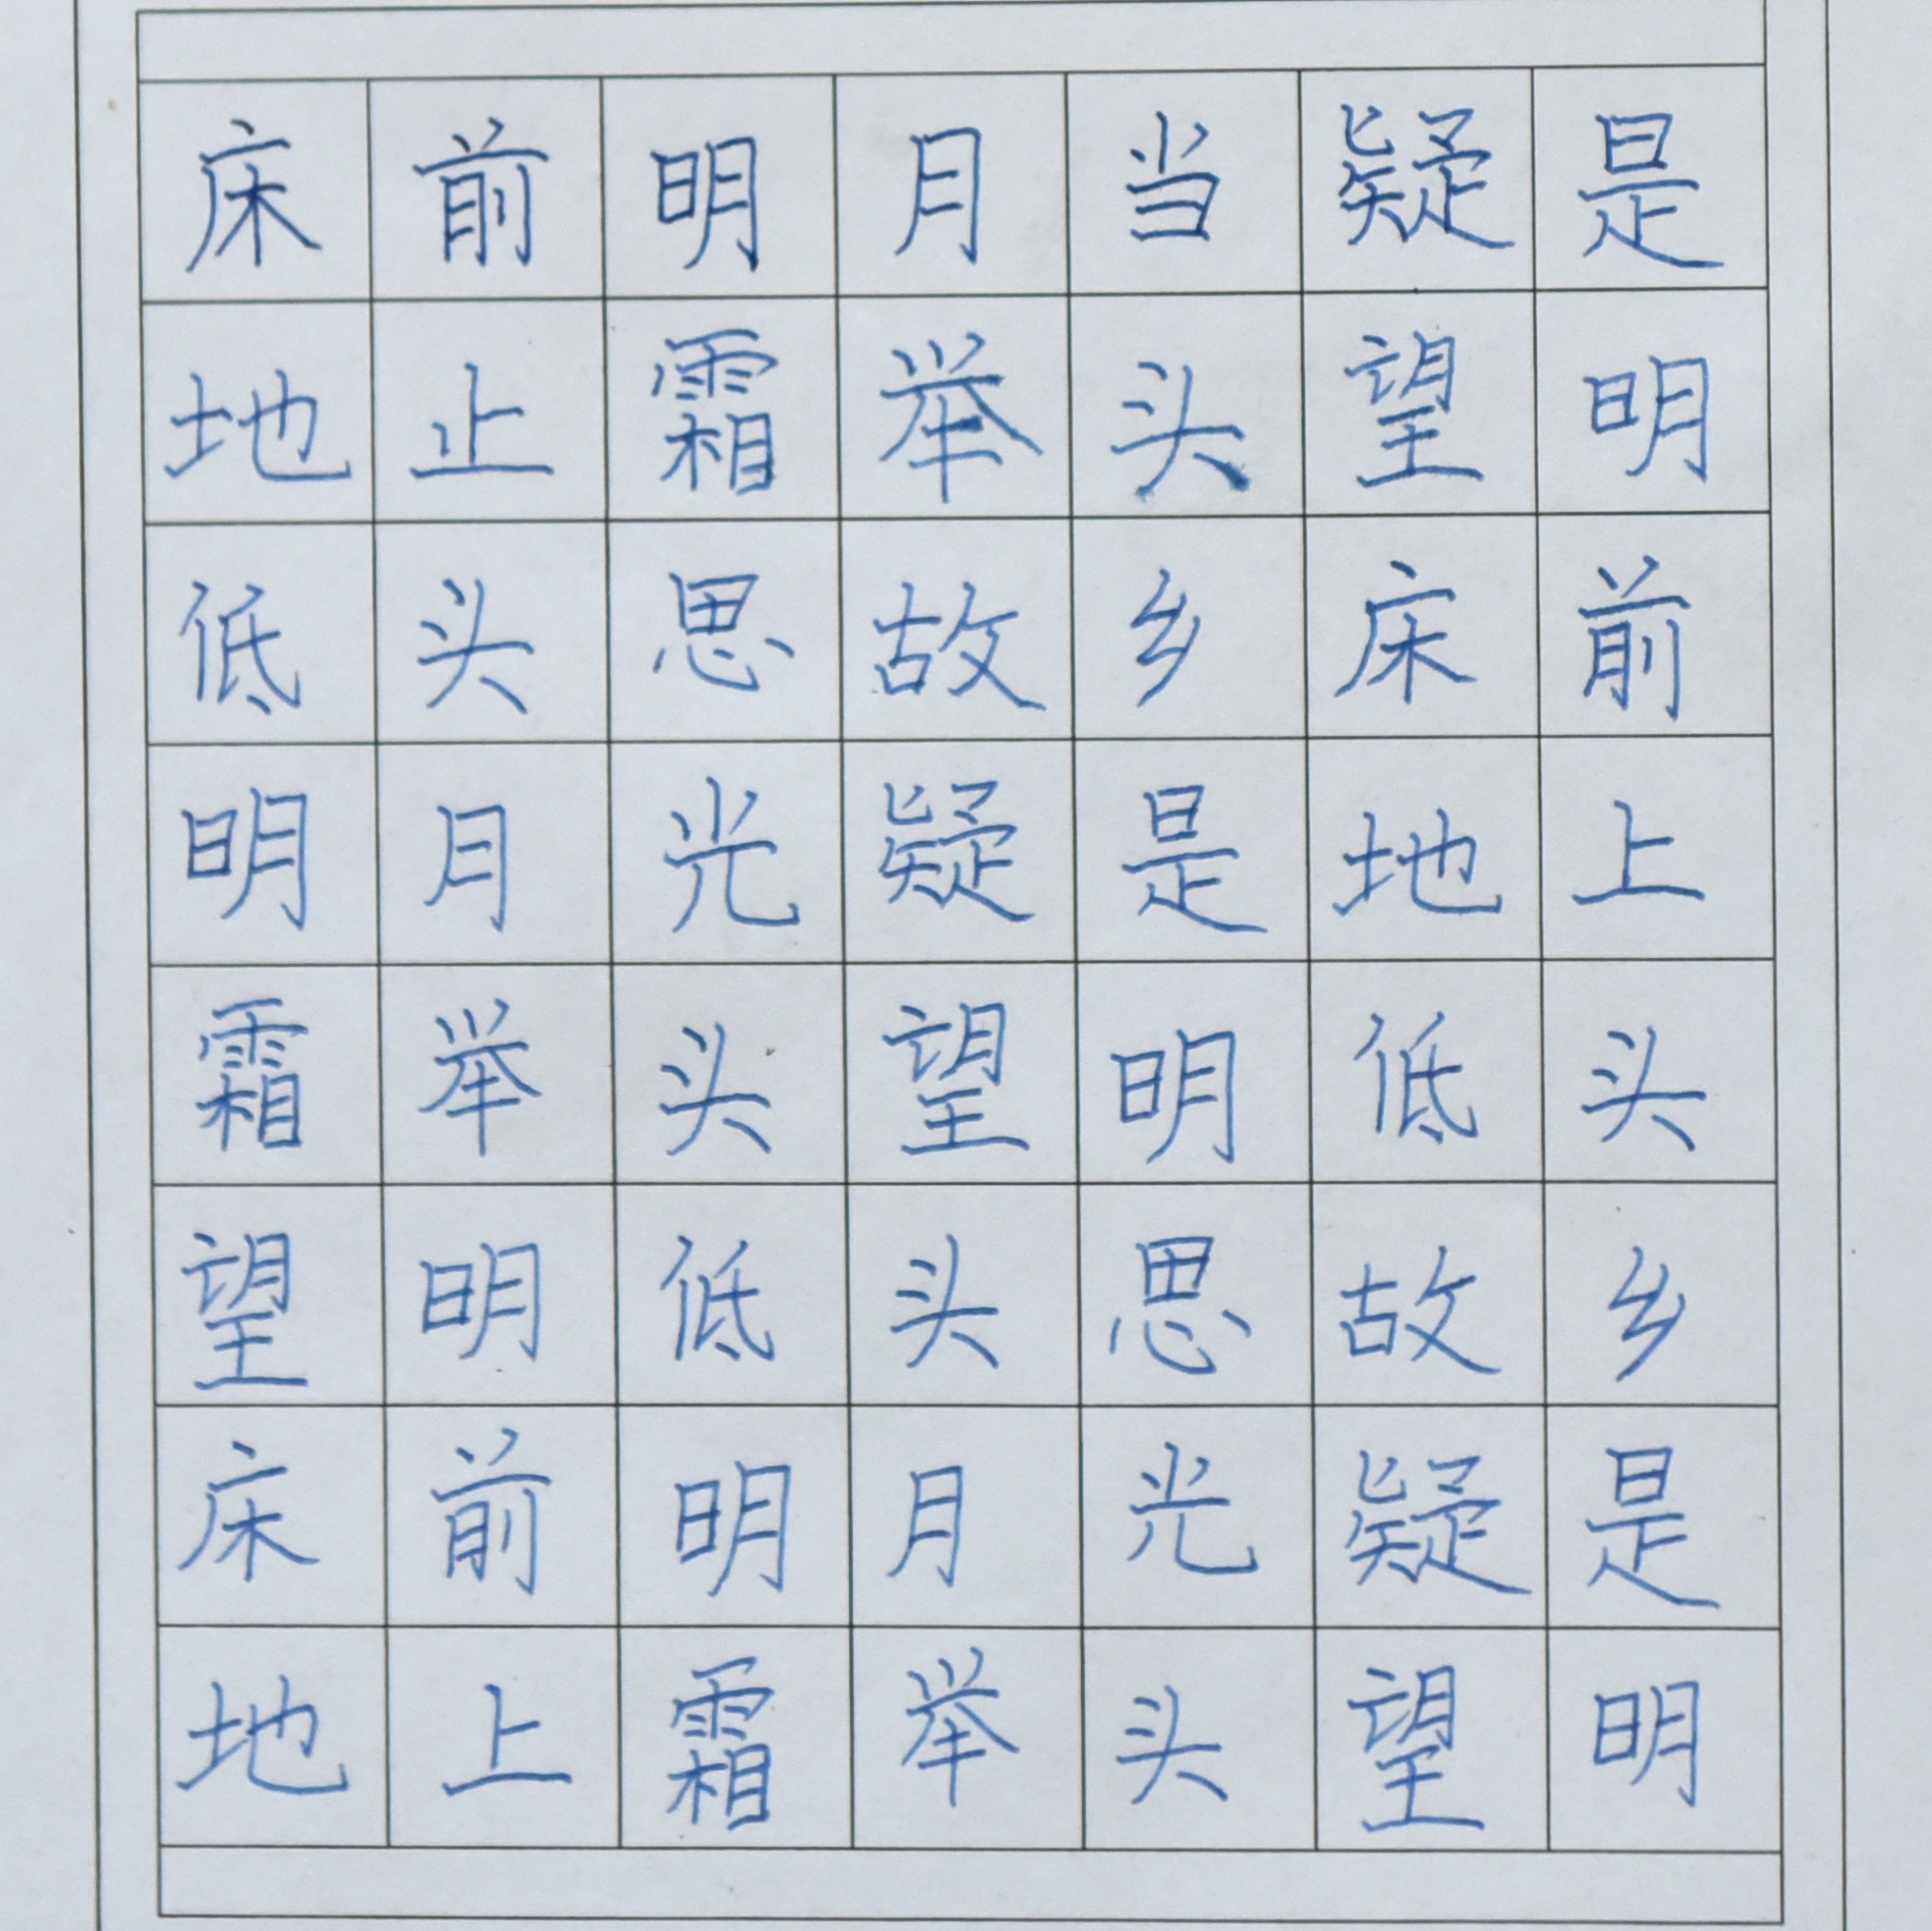 床前明月当疑是
地止霜举头望明
低头思故乡床前
明月光疑是地上
霜举头望明低头
望明低头思故乡
床前明月光疑是
地上霜举头望明